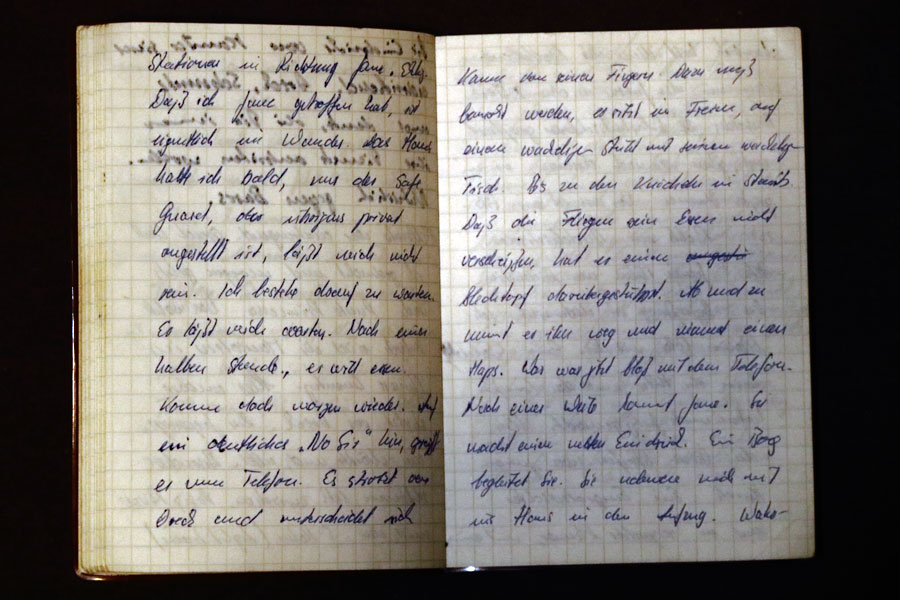 Stationen in Richtung Jane.
Daß ich Jane getroffen hab, ist
eigentlich ein Wunder. Das Haus
hatte ich bald, nur der Safe
Guard, der übrigens privat
angestellt ist, läßt mich nicht
rein. Ich bestehe darauf zu warten.
Er läßt mich warten. Nach einer
halben Stunde, er will essen.
Komme doch morgen wieder. Auf
ein deutliches „No Sir" hin, greift
er zum Telefon. Es strotzt vor
Dreck und unterscheidet sich
kaum von seinen Fingern. Dazu muß
bemerkt werden, er sitzt im Freien, auf
einem wackligen Stuhl mit seinem wackligen
Tisch. Bis zu den Knöcheln im Staub.
Daß die Fliegen sein Essen nicht
verschleppen, hat er einen
Blechtopf darübergestülpt. Ab und zu
nimmt er ihn weg und nimmt einen
Haps. Was war jetzt bloß mit dem Telefon.
Nach einer Weile kommt Jane. Sie
macht einen netten Eindruck. Ein Boy
begleitet Sie. Sie nehmen mich mit
ins Haus in den